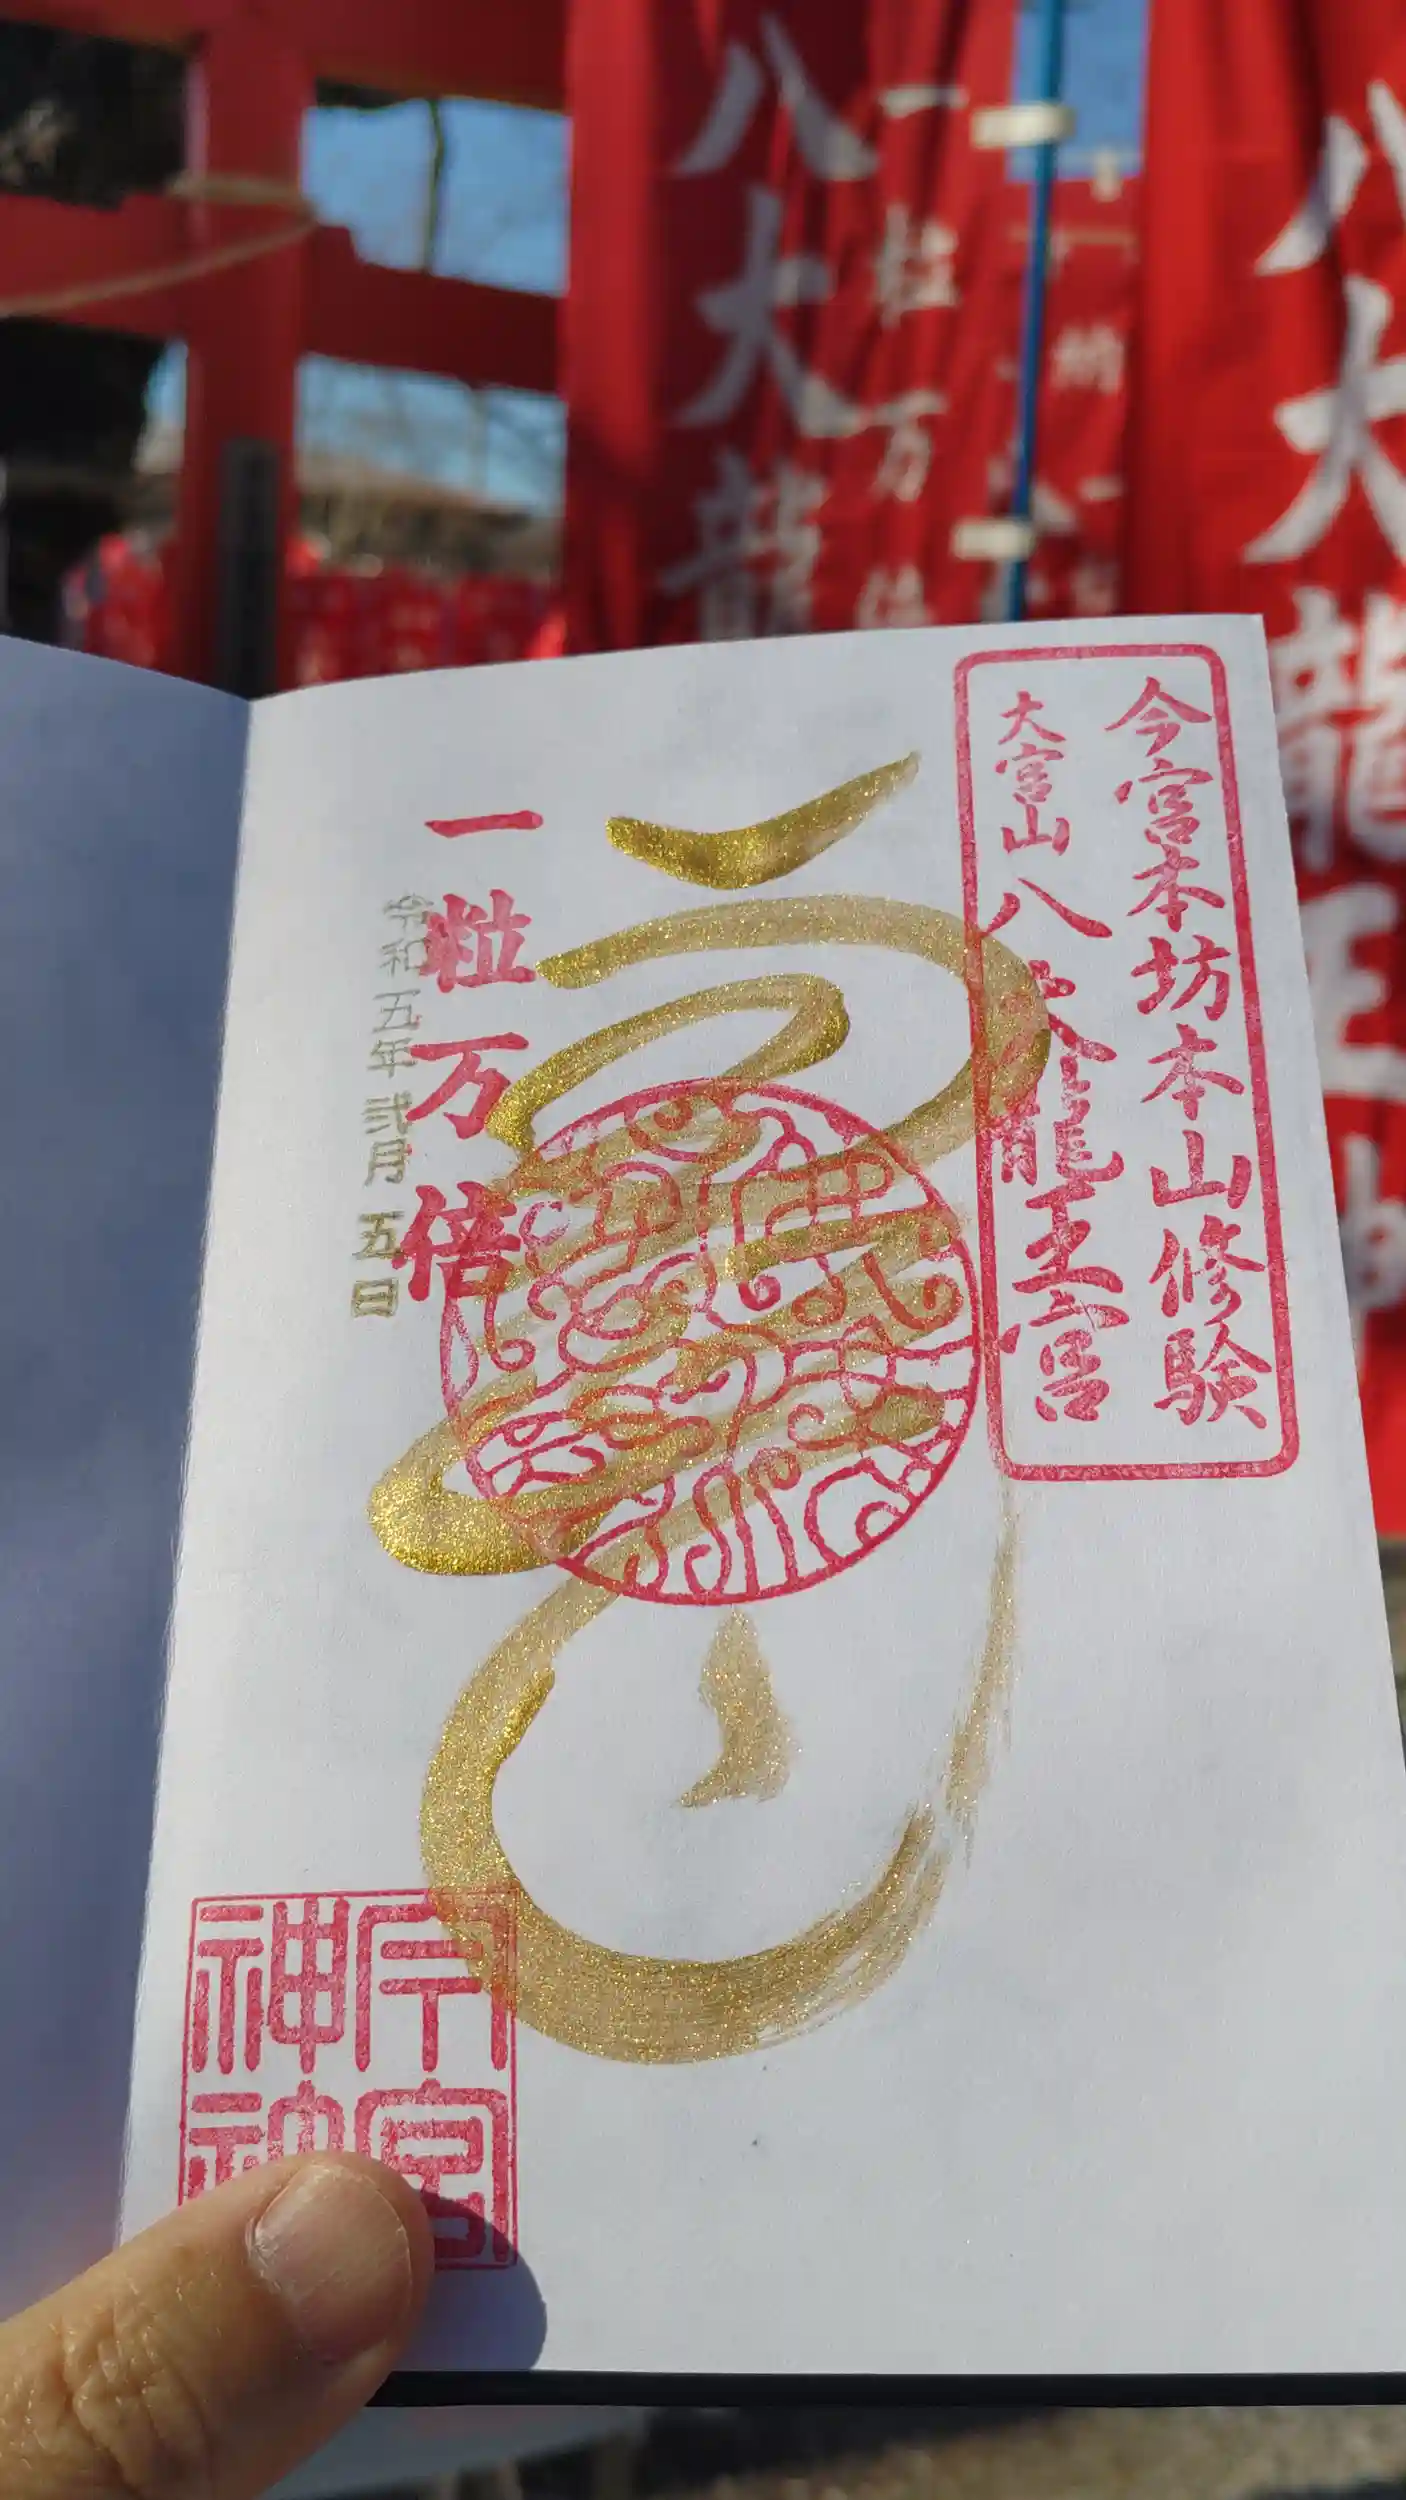 八大龍
一粒万倍
八大龍王神
今宮本坊本山修験
大宮山八大龍王宮
一粒万倍
令和五年弐月五日
今宮
神